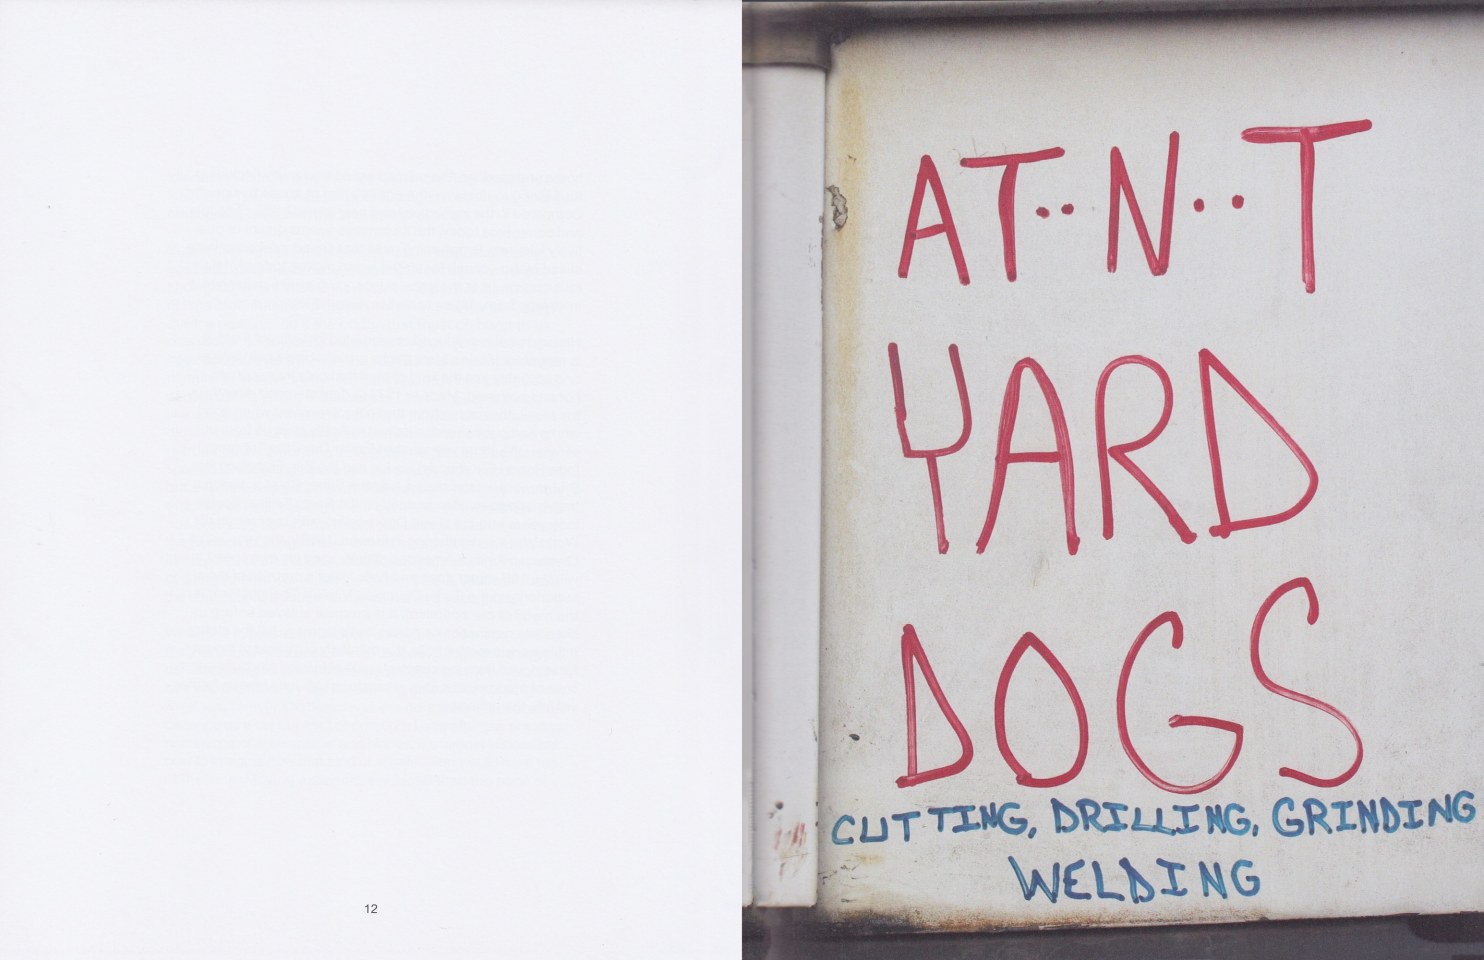 12
AT··N··T
YARD
DOGS
CUTTING, DRILLING, GRINDING
WELDING